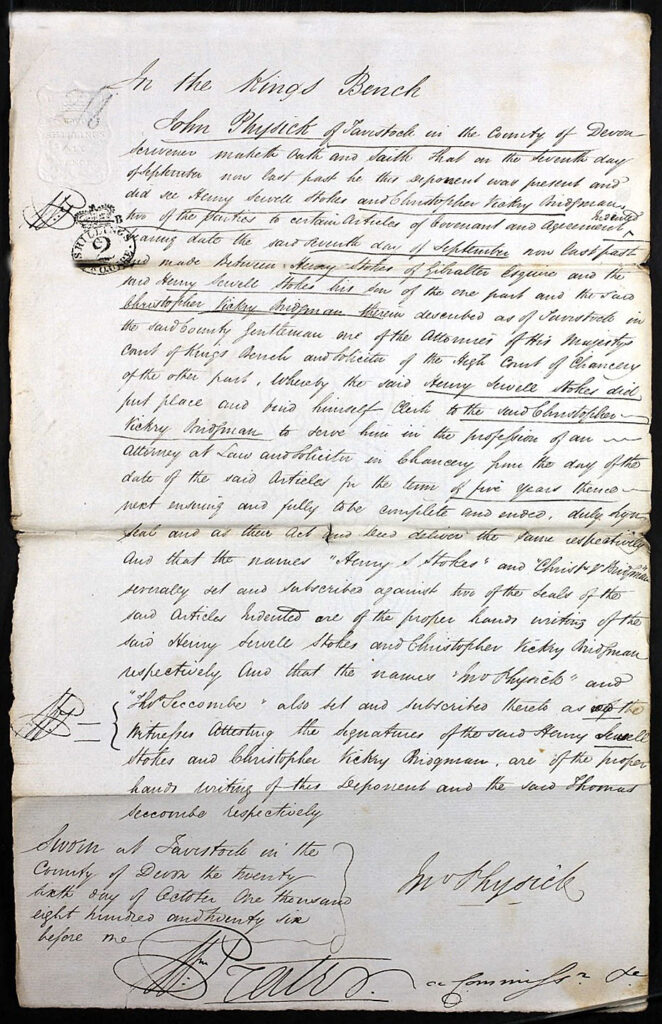 In the Kings Bench
John Physick of Tavistock in the County of Devon
Scrivener maketh Oath and Saith that on the Seventh day
of September now last past he this Deponent was present and
did see Henry Sewell Stokes and Christopher Vickry Bridgman
two of the parties to certain Articles of Covenant and Agreement Indented
bearing date the said Seventh day of September now last past
and made Between Henry Stokes of Gibralter Esquire and the
said Henry Sewell Stokes his son of the one part and the said
Christopher Vickry Bridgman therein described as of Tavistock in
the said County Gentleman one of the Attornies of His Majestys
Court of Kings Bench and Solicitor of the High Court of Chancery
of the other part, Whereby the said Henry Sewell Stokes did
put place and bind himself Clerk to the said Christopher
Vickry Bridgman to serve him in the profession of an
Attorney at Law and Solicitor in Chancery from the day of the
date of the said Articles for the term of five Years thence
next ensuing and fully to be complete and ended, duly Sign
Seal and as their Act and Deed deliver the same respectively
And that the names "Henry S Stokes" and "Christr V Bridgman"
severally set and subscribed against two of the Seals of the
said Articles Indented are of the proper hands writing of the
said Henry Sewell Stokes and Christopher Vickry Bridgman
respectively And that the names "Jno Physick" and
"Thos Seccombe" also set and subscribed thereto as the
Witnesses Attesting the Signatures of the said Henry Sewell
Stokes and Christopher Vickry Bridgman, are of the proper
hands writing of this Deponent and the said Thomas
Seccombe respectively
Sworn at Tavistock in the
County of Devon the twenty
sixth day of October One thousand
eight hundred and twenty six
before me
Jno Physick
a Commissr &c
SHILLINGS
2